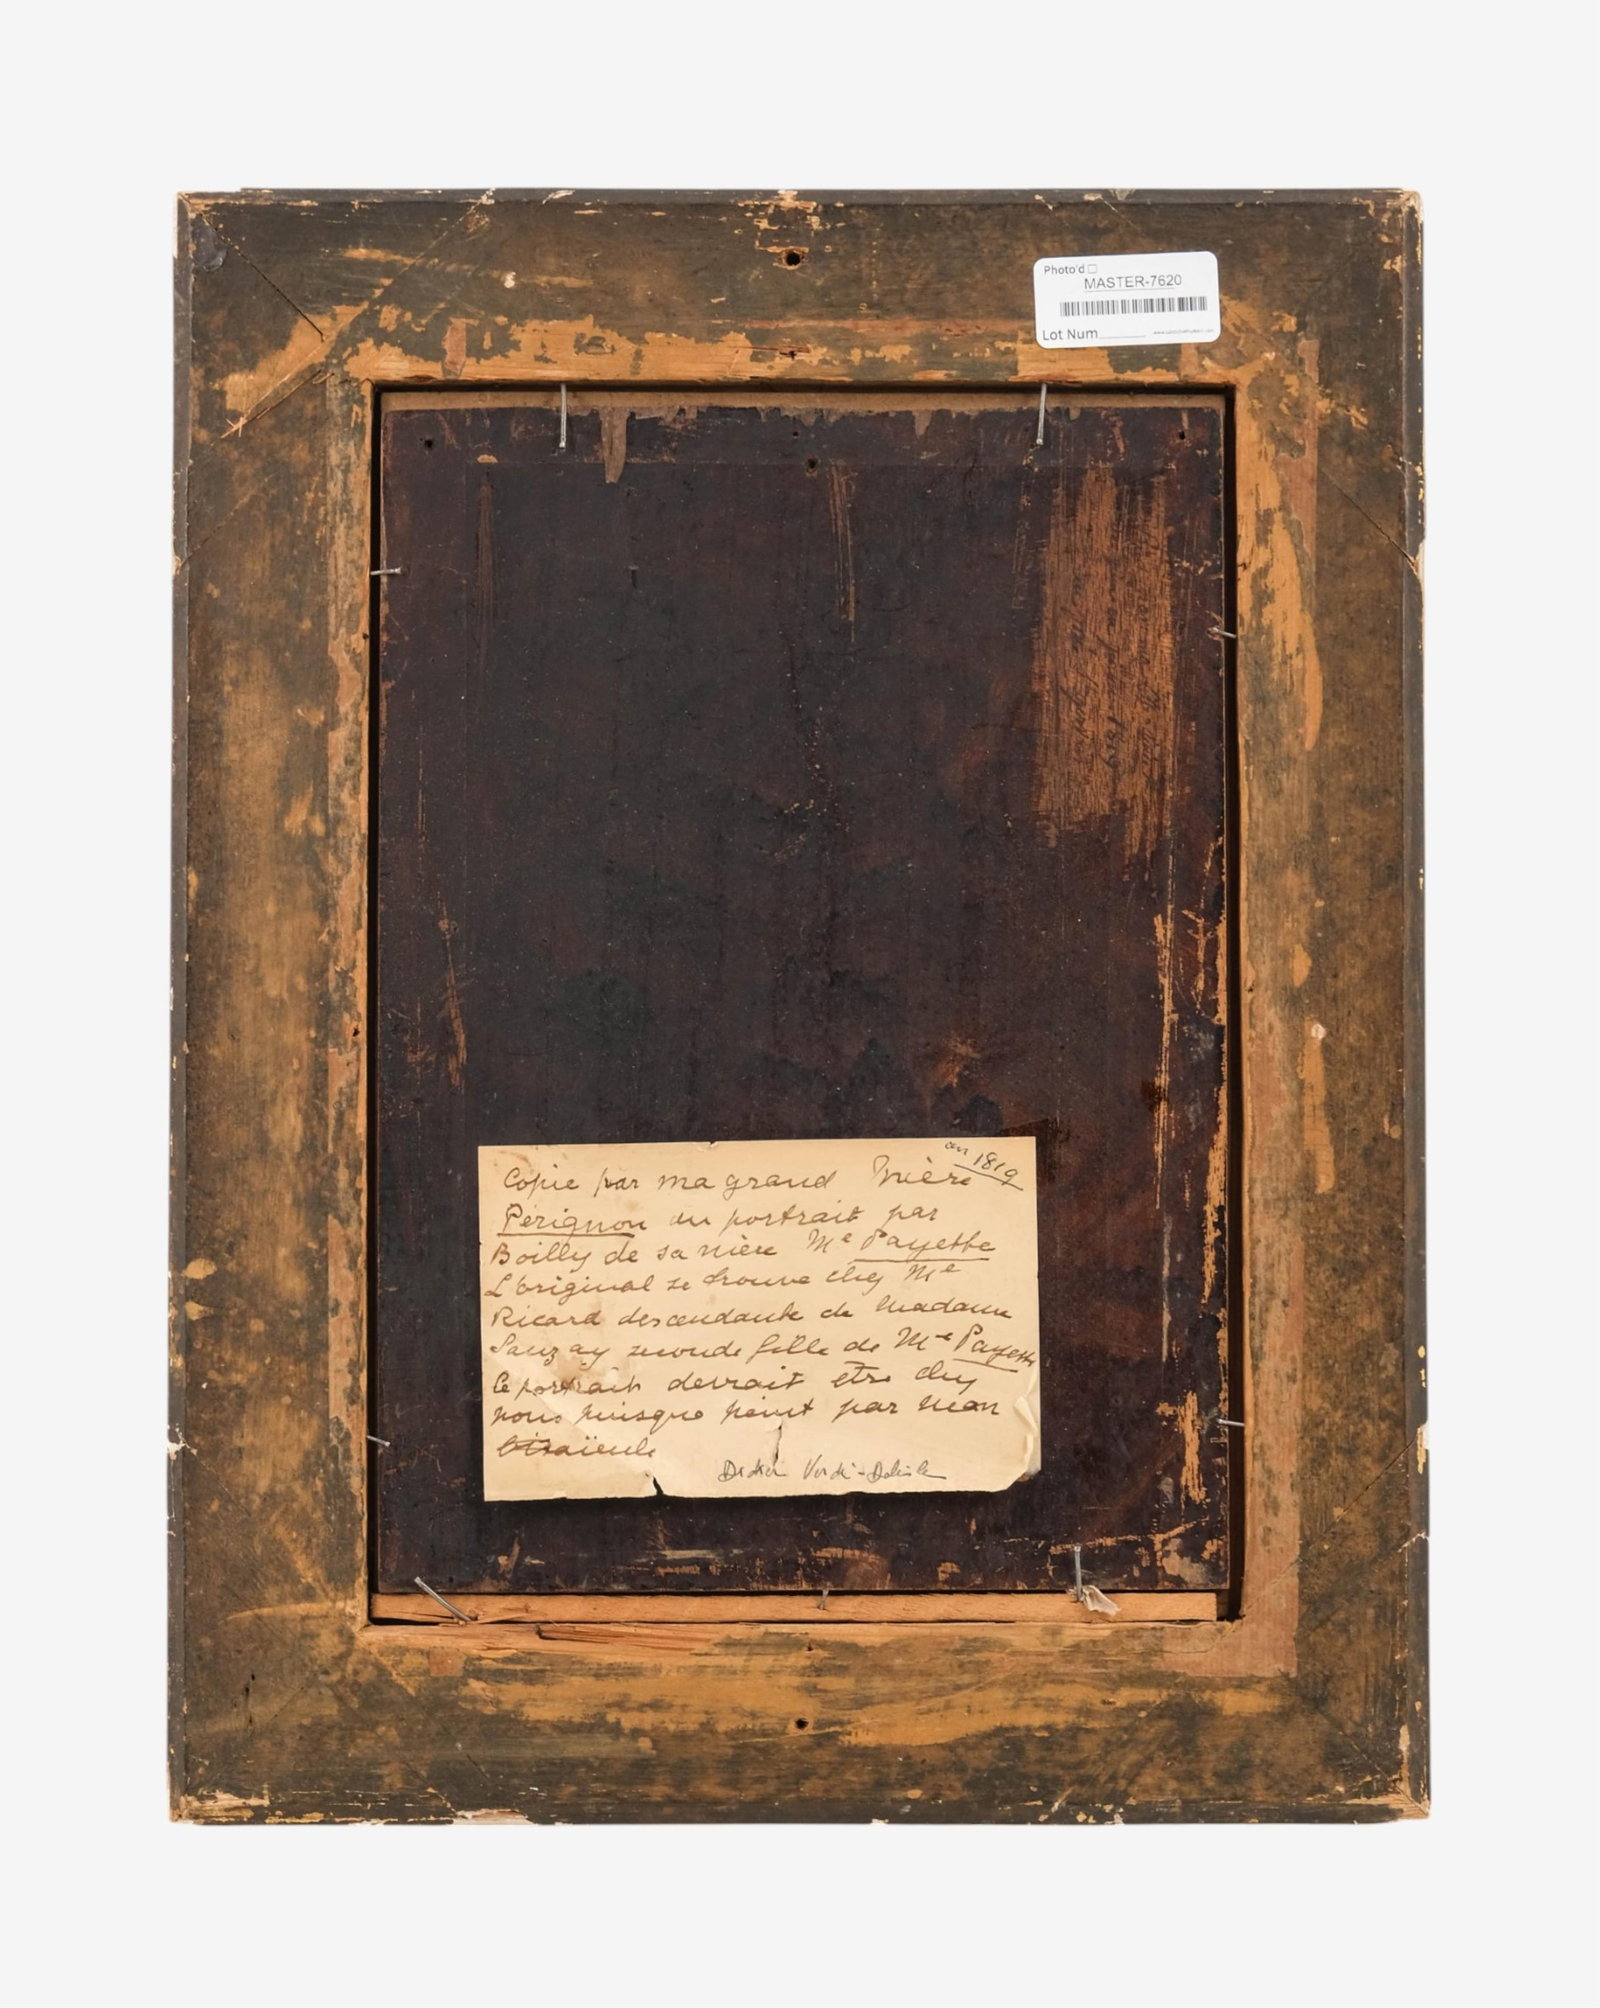 Photo'd
MASTER-7620
Lot Num
en 1819
Copie par ma grand Mère
Pérignon du portrait par
Boilly de sa mère Me Payette
L'original se trouve chez Me
Ricard descendante de Madame
Sauzay seconde fille de Me Payette
le portrait devrait être chez
nous puisque peint par mon
bisaïeule
Didier Verdé-Delisle